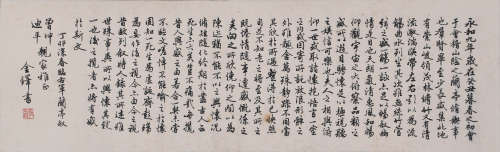 永和九年歲在癸丑暮春之初會
于會稽山陰之蘭亭脩禊事
也群賢畢至少長咸集此地
有崇山峻領茂林脩竹又有清
流激湍映帶左右引以為流
觴曲水列坐其次雖無絲竹管弦
之盛一觴一詠亦足以暢叙幽
情是日也天朗氣清惠風和暢
仰觀宇宙之大俯察品類之
盛所以遊目騁懷足以極視聽
之娛信可樂也夫人之相與俯
仰一世或取諸懷抱悟言一室
之內或因寄所託放浪形骸
之外雖趣舍萬殊靜躁不同當
其欣於所遇暫得於己快然
自足不知老之將至及其所之
既倦情隨事遷感慨係之
矣向之所欣俛仰之間以為
陳迹猶不能不以之興懷況
脩短隨化終期於盡古人云
死生亦大矣豈不痛哉每攬
昔人興感之由若合一契未嘗
不臨文嗟悼不能喻之於懷
固知一死生為虛誕齊彭殤
為妄作後之視今亦由今之視
昔悲夫故列叙時人錄其所述雖
世殊事異所以興懷其致
一也後之攬者亦將有感
於斯文
臨右軍蘭亭叙
親家雅正
書